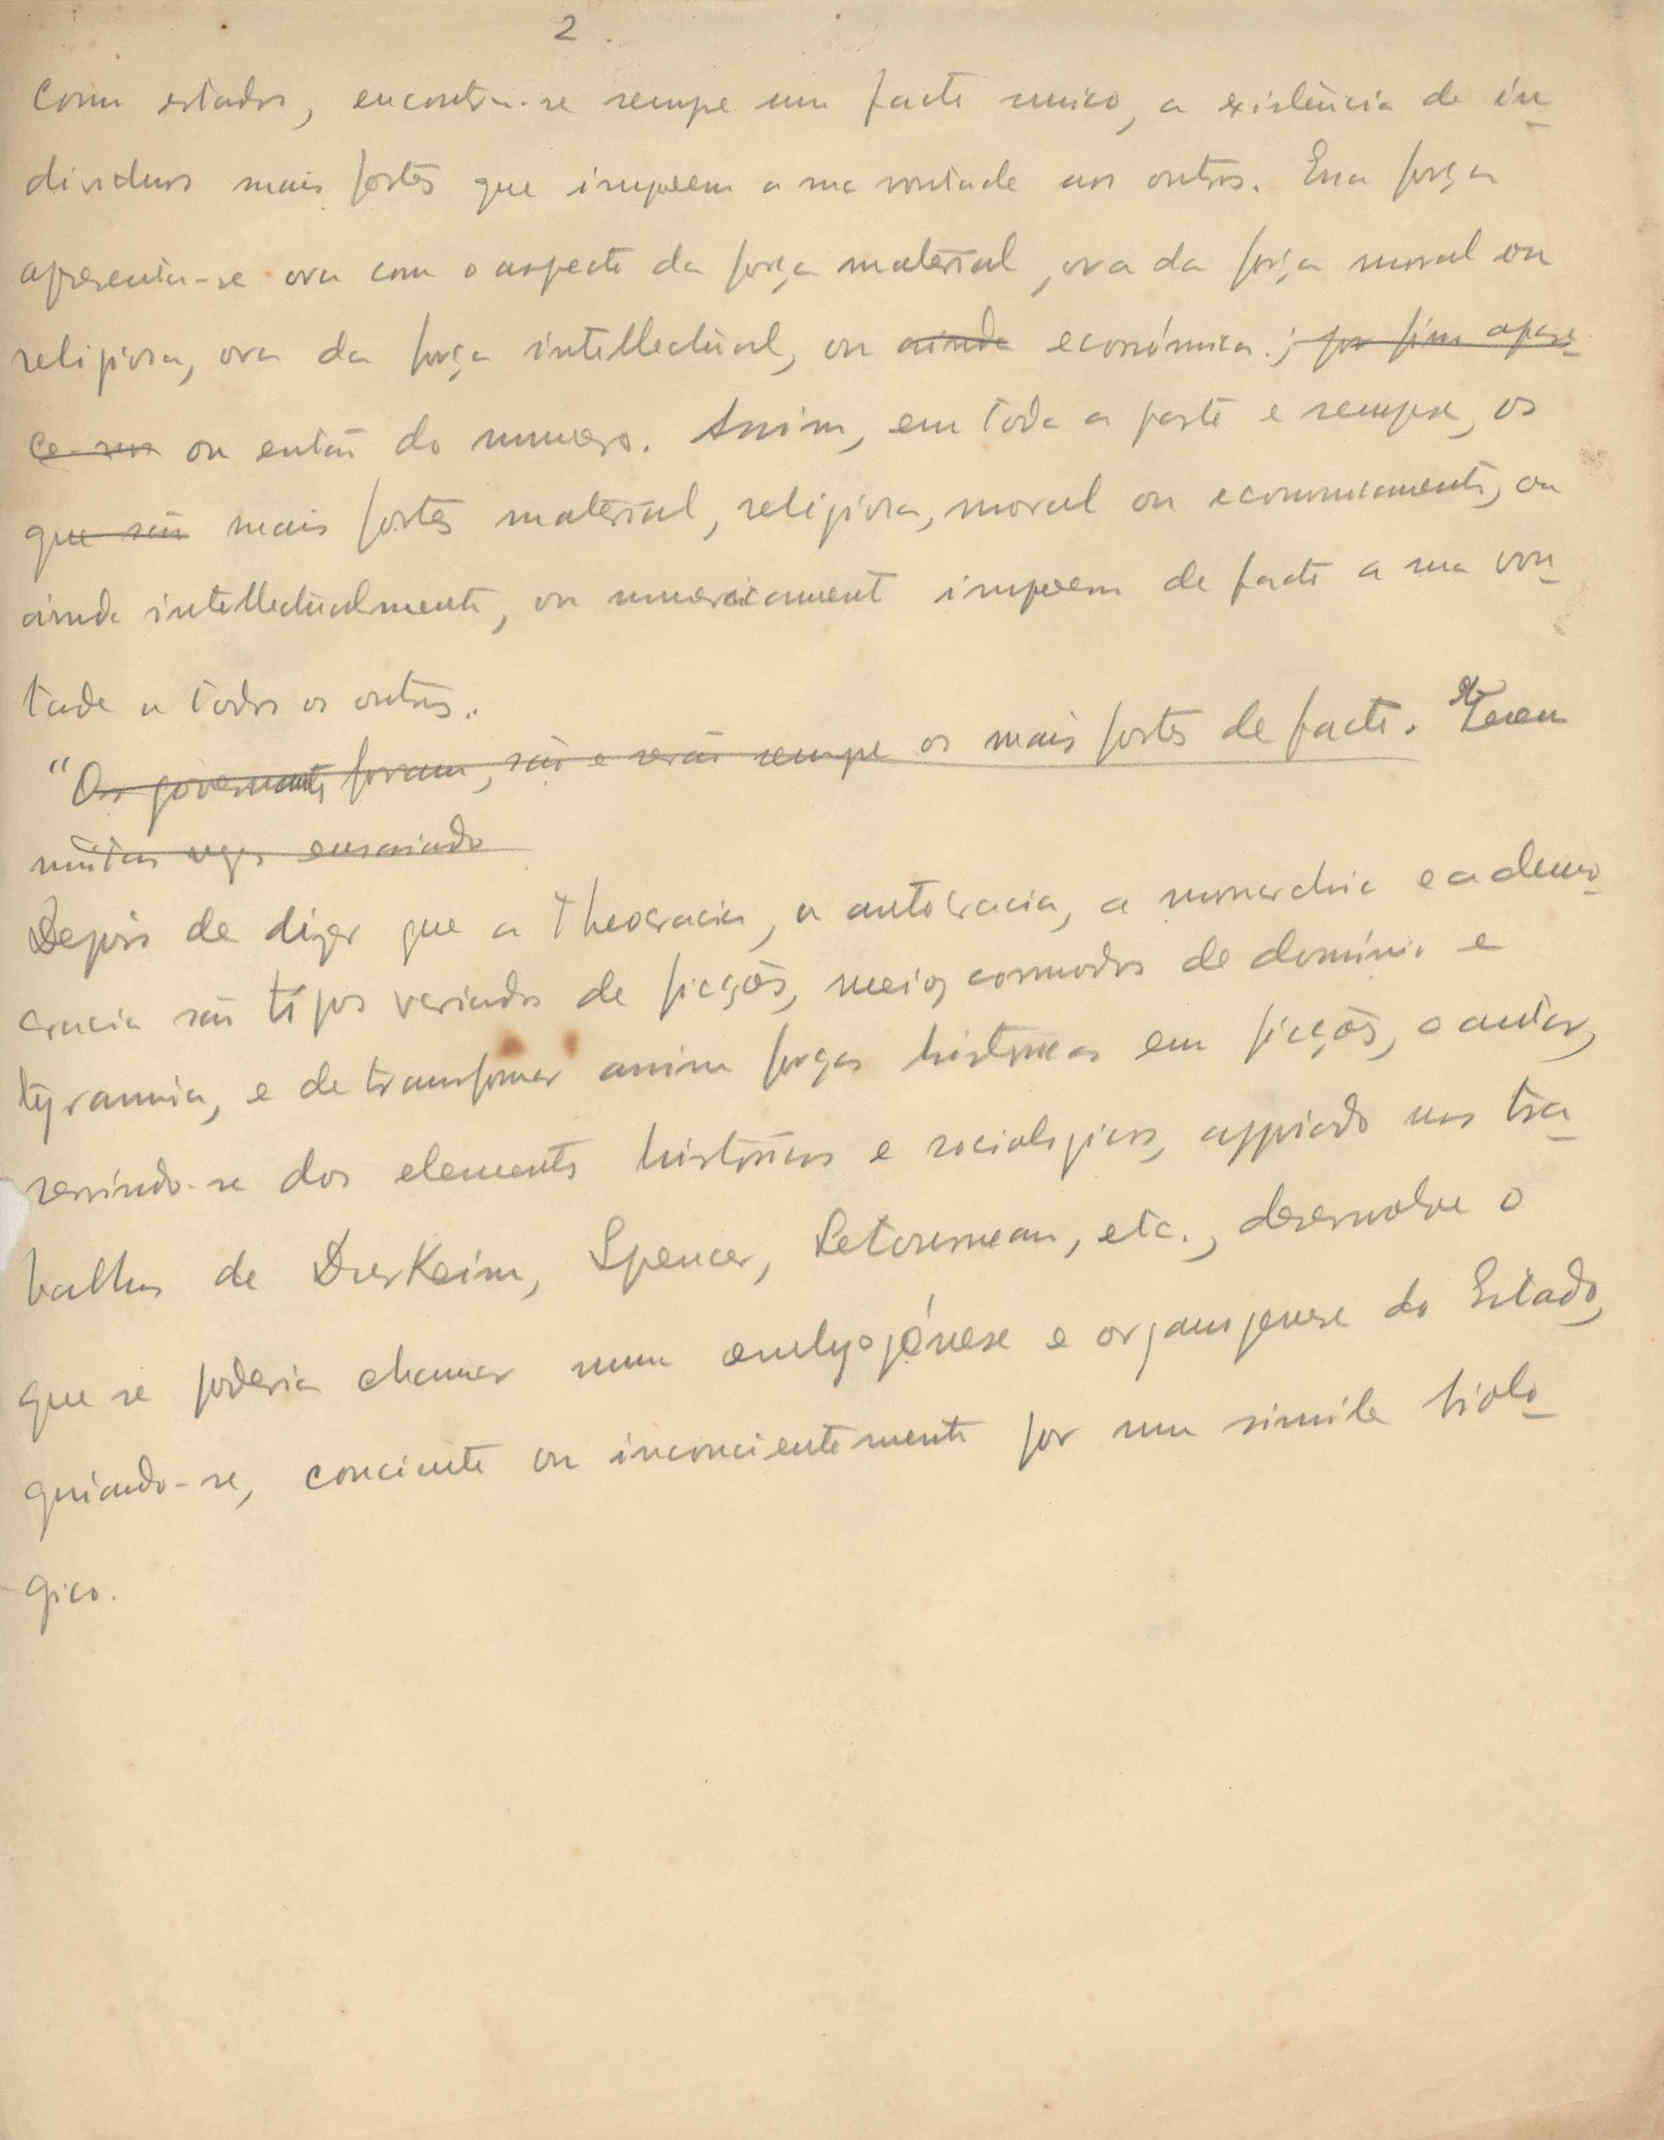 2.
como estados, encontra-se sempre um facto unico, a existência de in-
dividuos mais fortes que impoem a sua vontade aos outros. Essa força
apresenta-se ora com o aspecto da força material, ora da força moral ou
religiosa, ora da força intellectual, ou ainda económica.; por fim apare-
ce-nos ou então do numero. Assim, em toda a parte e sempre, os
que são mais fortes material, religiosa, moral ou economicamente, ou
ainda intellectualmente, ou numericament impoem de facto a sua von-
tade a todos os outros.
"Os governantes foram, são e serão sempre os mais fortes de facto.
muitas vezes ensaiado
Depois de dizer que a theocracia, a autocracia, a monarchia e a demo-
cracia são tipos variados de ficções, meios commodos de dominio e
tyrannia, e de transformar assim forças historicas em ficções, o autor,
servindo-se dos elementos históricos e sociologicos, appoiado nos tra-
balhos de Durkeim, Spencer, Letourneau, etc., desenvolve o
que se poderia chamar uma embryogénese e organogenese do Estado,
guiando-se, conciente ou inconcientemente por um simile biolo-
gico.